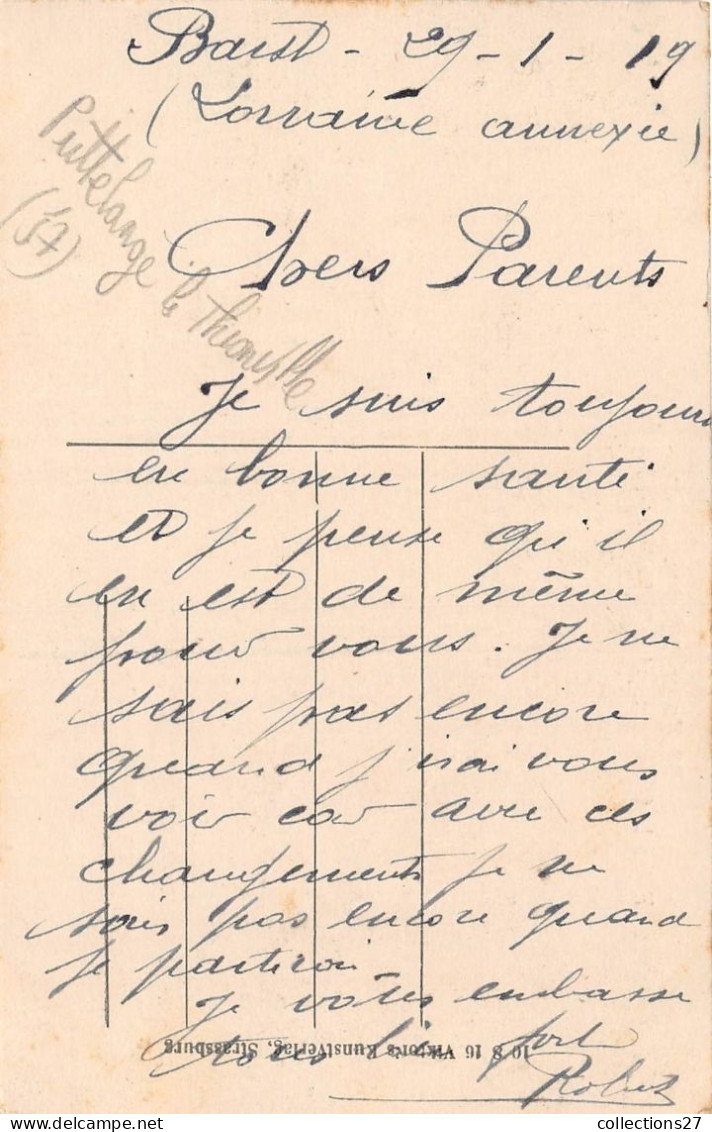 Barst - 29-1-19
(Lorraine annexée)
Puttelange
(57)
Chers Parents
Je suis toujours
en bonne santé
et je pense qu'il
en est de même
pour vous. Je ne
sais pas encore
quand j'irai vous
voir car avec ces
changements je ne
sais pas encore quand
je partirai
Je vous embrasse
tous fort
Robert
10 8 16 Viktoria Kunstverlag, Strassburg
collections27